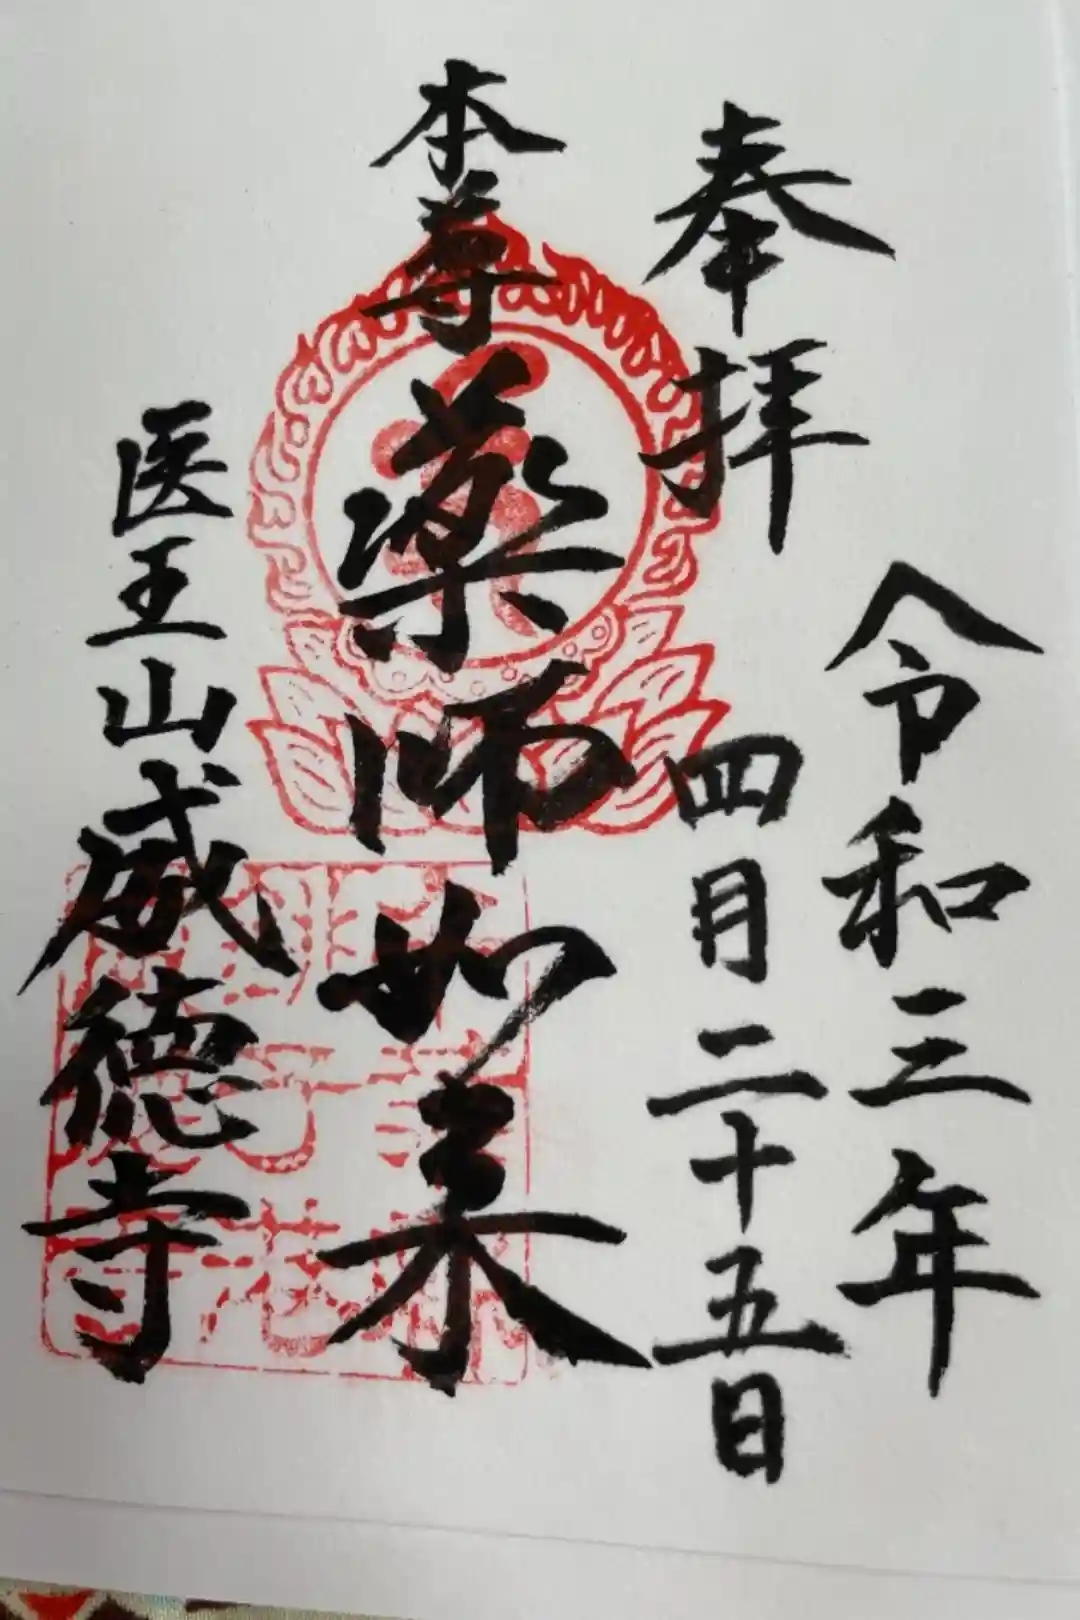 奉拝
令和三年
四月二十五日
本尊薬師如来
医王山威徳寺